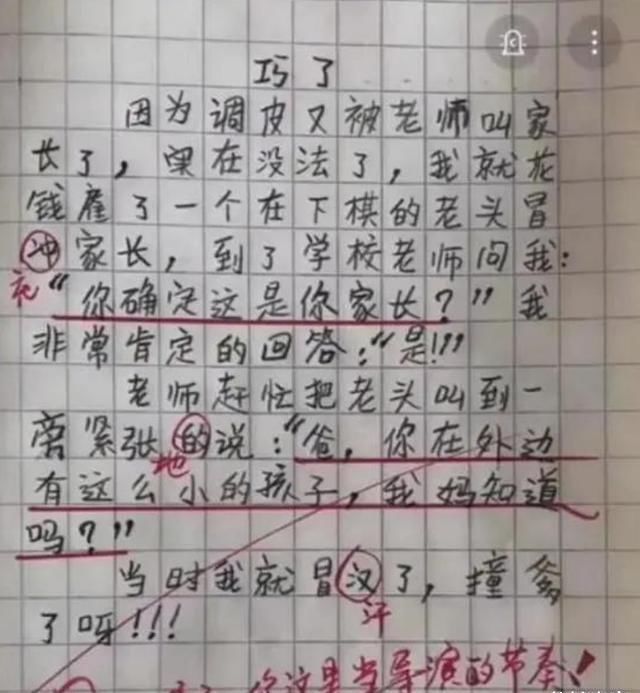 巧了
因为调皮又被老师叫家
长了，实在没法了，我就花
钱雇了一个在下棋的老头冒
冲家长，到了学校老师问我：
充
“你确定这是你家长？”我
非常肯定的回答：“是!!!
老师赶忙把老头叫到一
旁紧张的说：“爸，你在外边
地
有这么小的孩子，我妈知道
吗？”
当时我就冒汉了，撞爹
汗
了呀!!!
你这是当导演的节奏!